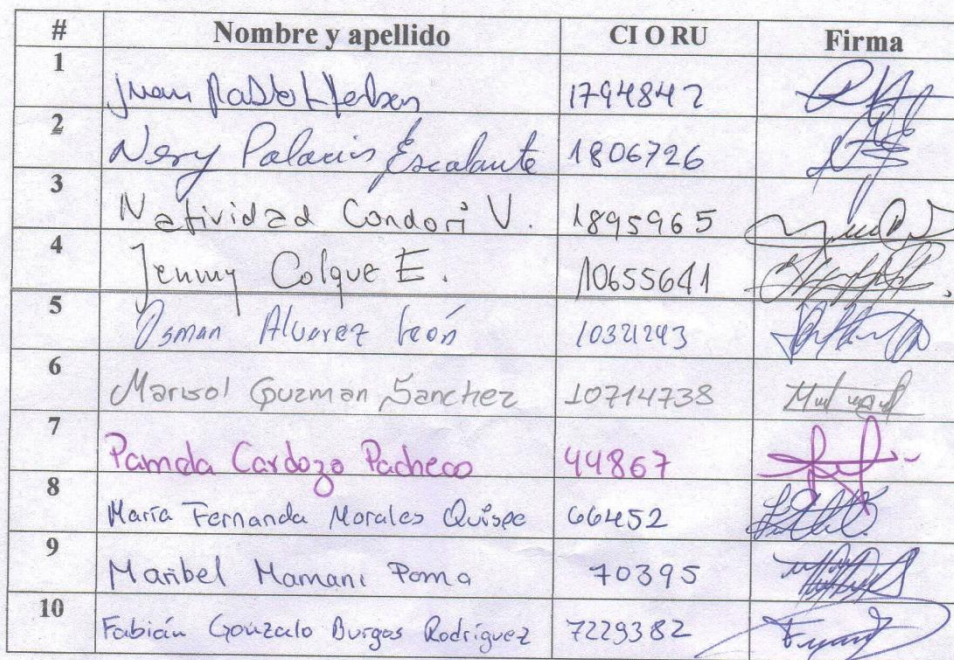 # Nombre y apellido CI O RU Firma
1 Juan Pablo 1794842
2 Nery Palacios Escalante 1806726
3 Natividad Condori V. 1895965
4 Jenny Colque E. 10655641
5 Osman Alvarez León 10321243
6 Marisol Guzman Sanchez 10714738
7 Pamela Cardozo Pacheco 44867
8 María Fernanda Morales Quispe 66452
9 Maribel Mamani Poma 70395
10 Fabián Gonzalo Burgos Rodríguez 7229382